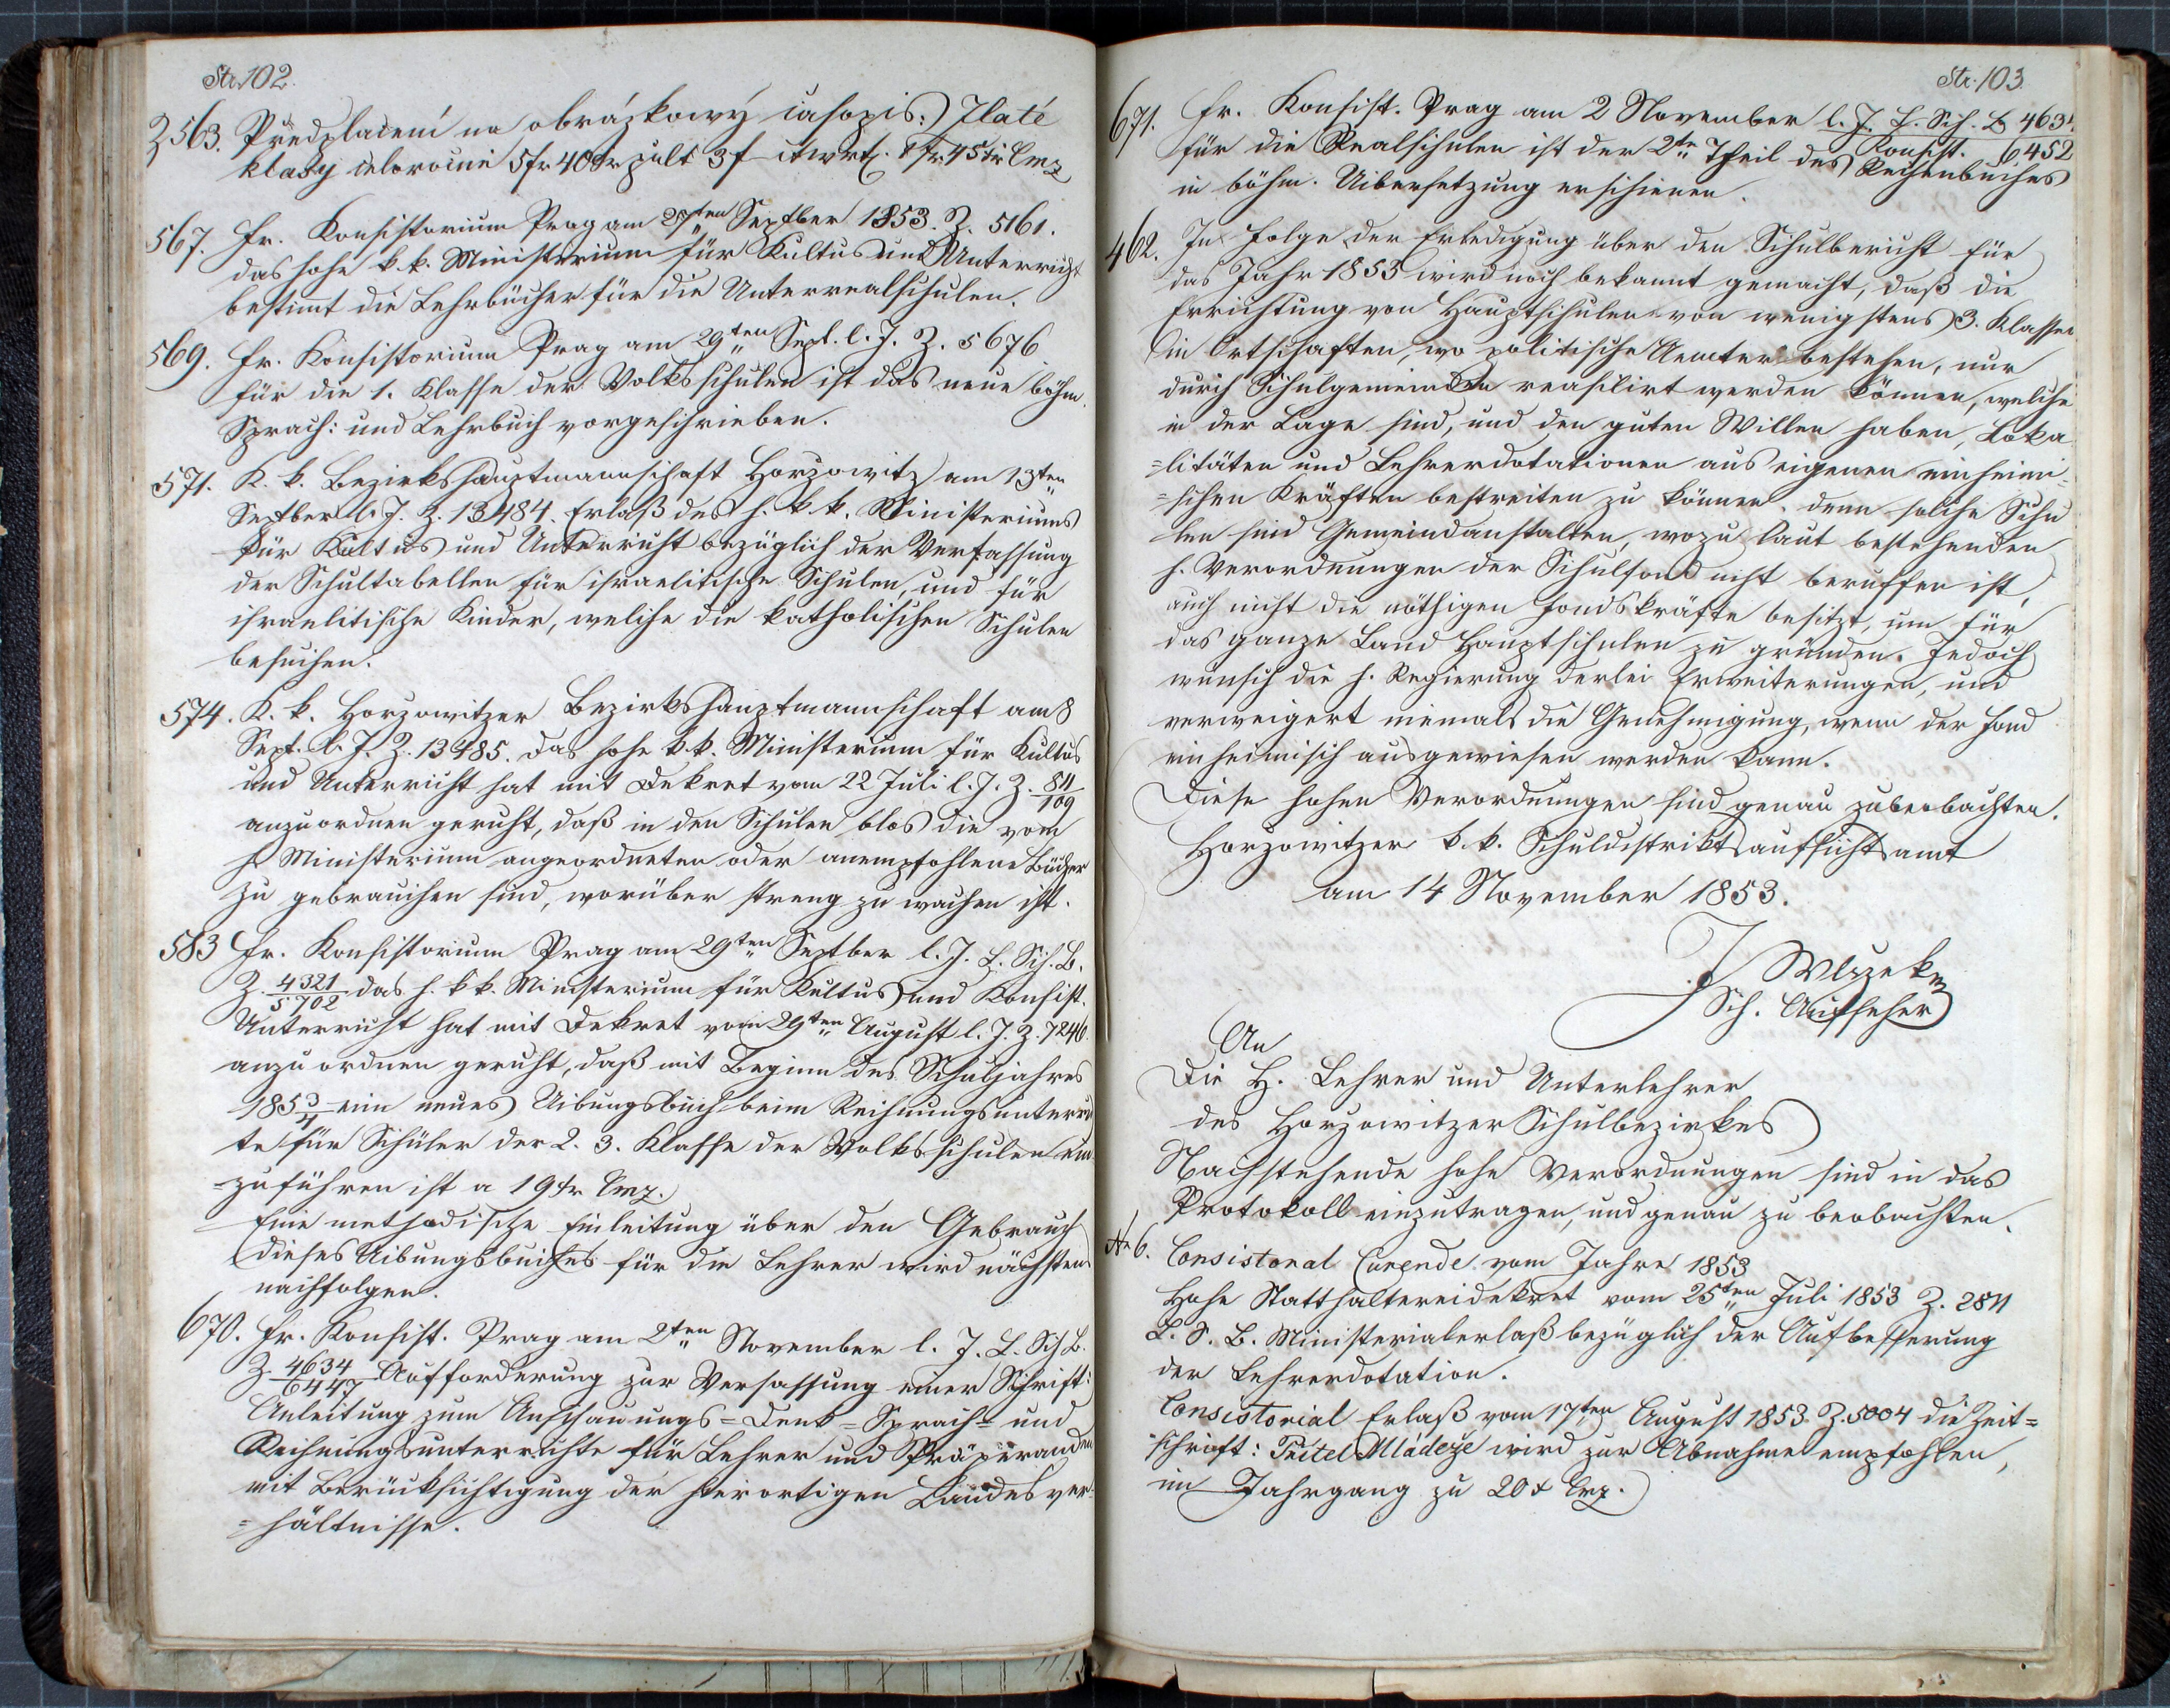 Str. 102.
Z 563. Předplacení na obrázkowý časopis: Zlaté
klasy celoročně 5 fr 40 xr půlt 3 f čtwrt. 1 fr 45 xr Cmz
567. Fr. Konsistorium Prag am 27ten Septber 1853. Z. 5161.
das hohe k. k. Ministerium für Kultus und Unterricht
bestimt die Lehrbücher für die Unterrealschulen.
569. Fr. Konsistorium Prag am 29ten Sept. l. J. Z. 5676
für die 1. Klasse der Volksschulen ist das neue böhm.
Sprach: und Lehrbuch vorgeschrieben.
571. K. k. Bezirkshauptmannschaft Horzowitz am 13ten
Septber l. J. Z. 13484. Erlaß des h. k k. Ministeriums
für Kultus und Unterricht bezüglich der Verfassung
der Schultabellen für israelitische Schulen, und für
israelitische Kinder, welche die katholischen Schulen
besuchen.
574. K. k. Horzowitzer Bezirkshauptmannschaft am 8
Sept. l. J. Z. 13485. das hohe k k. Ministerium für Kultus
und Unterricht hat mit Dekret vom 22 Juli l. J. Z. 811/109
anzuordnen geruht, daß in den Schulen blos die vom
h. Ministerium angeordneten oder anempfohlene Bücher
zu gebrauchen sind, worüber streng zu wachen ist.
583 Fr. Konsistorium Prag am 29ten Septber l. J. L. Sch. B.
Z. 4321/5702 das h. k k. Ministerium für Kultus und Konsist.
Unterricht hat mit Dekret vom 29ten August l. J. Z. 7246
anzuordnen geruht, daß mit Beginn des Schuljahres
1853/4 ein neues Uibungsbuch beim Rechnungsunterrich
te für Schüler der 2. 3. Klasse der Volksschulen ein
=zuführen ist a 19 xr Cmz.
Eine methodische Einleitung über den Gebrauch
dieses Uibungsbuches für die Lehrer wird nächstens
nachfolgen.
670. Fr. Konsist. Prag am 2ten November l. J. L. Sch. B.
Z. 4634/6447 Aufforderung zur Verfassung einer Schrift:
Anleitung zum Anschauungs= Denk= Sprach= und
Rechnungsunterrichte für Lehrer und Präparanden
mit Berücksichtigung der hierortigen Landesver=
=hältnisse.
Str. 103.
671. Fr. Konsist. Prag am 2 November l. J. L. Sch. B 4631.
Konsist. 6452
für die Realschulen ist der 2te Theil des Rechenbuches
in böhm. Uibersetzung erschienen.
462. In Folge der Erledigung über den Schulbericht für
das Jahr 1853 wird noch bekannt gemacht, daß die
Errichtung von Hauptschulen von wenigstens 3. Klassen
in Ortschaften, wo politische Aemter bestehen, nur
durch Schulgemeinden reasilirt werden können, welche
in der Lage sind, und den guten Willen haben, Loka
=litäten und Lehrerdotationen aus eigenen einheimi=
=schen Kräften bestreiten zu können. denn solche Schu
len sind Gemeindanstalten, wozu laut bestehenden
h. Verordnungen der Schulfond nicht beruffen ist,
auch nicht die nöthigen Fondskräfte besitzt, um für
das ganze Land Hauptschulen zu gründen. Jedoch
wünsch die h. Regierung derlei Erweiterungen, und
verweigert niemals die Genehmigung, wenn der Fond
einheimisch ausgewiesen werden kann.
Diese hohen Verordnungen sind genau zubeobachten.
Horzowitzer k. k. Schuldistriktsaufsichtsamt
am 14 November 1853.
J Wlczek
Sch. Aufseher
An
Die H. Lehrer und Unterlehrer
des Horzowitzer Schulbezirkes
Nachstehende hohe Verordnungen sind in das
Protokoll einzutragen, und genau zu beobachten.
No 6. Consistorial Currende vom Jahre 1853
Hohe Statthaltereidekret vom 25ten Juli 1853 Z. 2811
L. S. B. Ministerialerlaß bezüglich der Aufbesserung
der Lehrerdotation.
Consistorial Erlaß vom 17ten August 1853 Z. 5004 die Zeit=
schrift: Přítel Mládeže wird zur Abnahme empfohlen,
im Jahrgang zu 20 x Cmz.